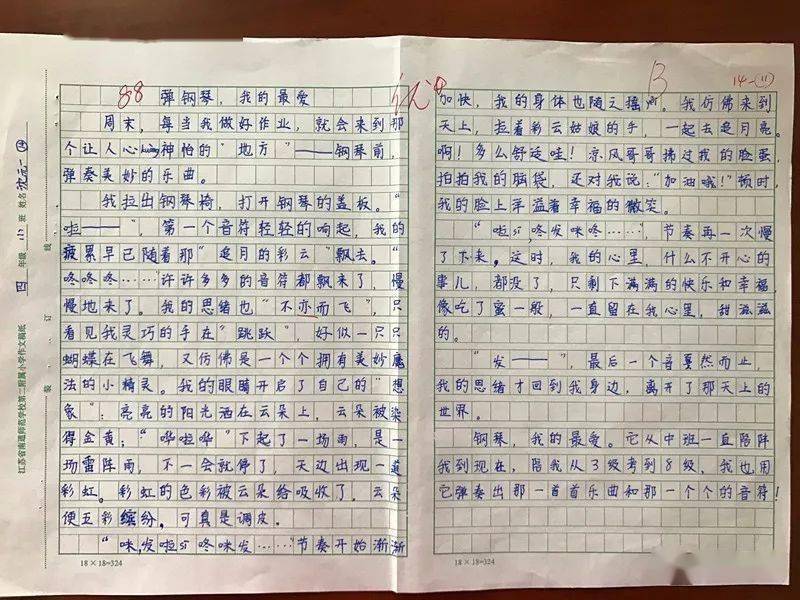 江苏省南通师范学校第二附属小学作文稿纸 四 年级 班 姓名 沈元一
装 订 线
88 弹钢琴，我的最爱
周末，每当我做好作业，就会来到那
个让人心神怡的“地方”——钢琴前，
弹奏美妙的乐曲。
我拉出钢琴椅，打开钢琴的盖板。“
啦——”，第一个音符轻轻的响起，我的
疲累早已随着那“追月的彩云”飘去。“
咚咚咚……”许许多多的音符都飘来了，慢
慢地来了。我的思绪也“不亦而飞”，只
看见我灵巧的手在“跳跃”，好似一只只
蝴蝶在飞舞，又仿佛是一个个拥有美妙魔
法的小精灵。我的眼睛开启了自己的“想
象”：亮亮的阳光洒在云朵上，云朵被染
得金黄；“哗啦哗”下起了一场雨，是一
场雷阵雨，不一会就停了，天边出现一道
彩虹。彩虹的色彩被云朵给吸收了。云朵
便五彩缤纷。可真是调皮。
“咪，发啦si咚咪发……”节奏开始渐渐
18×18=324
B 14-(11)
加快，我的身体也随之摇。我仿佛来到
天上，拉着彩云姑娘的手，一起去追月亮。
啊！多么舒适哇！凉风哥哥拂过我的脸蛋，
拍拍我的脑袋，还对我说：“加油哦！”顿时，
我的脸上洋溢着幸福的微笑。
“啦si，咚发咪咚……”，节奏再一次慢
了下来。这时，我的心里，什么不开心的
事儿，都没了，只剩下满满的快乐和幸福，
像吃了蜜一般，一直留在我心里，甜滋滋
的。
“发——”，最后一个音戛然而止，
我的思绪才回到我身边，离开了那天上的
世界。
钢琴，我的最爱。它从中班一直陪伴
我到现在，陪我从3级考到8级，我也用
它弹奏出那一首首乐曲和那一个个的音符！
18×18=324